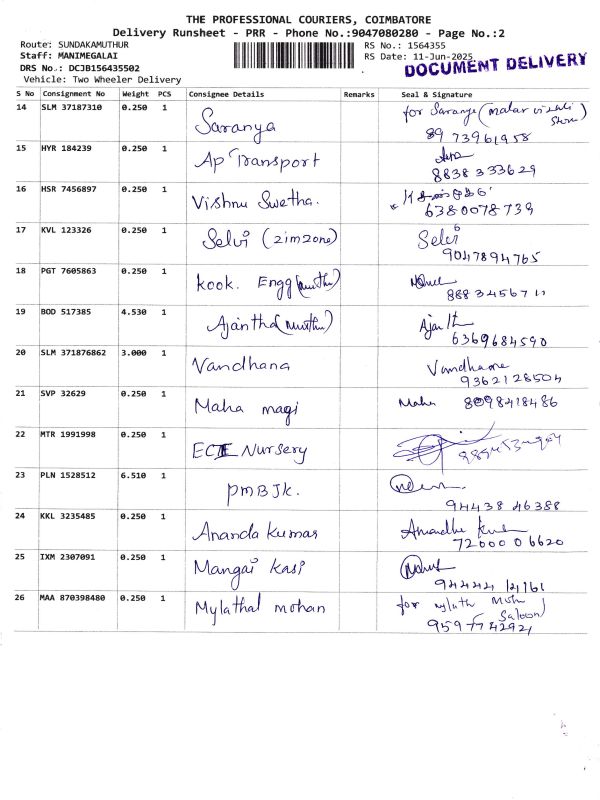 THE PROFESSIONAL COURIERS, COIMBATORE
Delivery Runsheet - PRR - Phone No.:9047080280 - Page No.:2
Route: SUNDAKAMUTHUR RS No.: 1564355
Staff: MANIMEGALAI RS Date: 11-Jun-2025
DRS No.: DCJB156435502 DOCUMENT DELIVERY
Vehicle: Two Wheeler Delivery
S No Consignment No Weight PCS Consignee Details Remarks Seal & Signature
14 SLM 37187310 0.250 1 Saranya for Saranya
89 73961958
15 HYR 184239 0.250 1 Ap Transport
8838333629
16 HSR 7456897 0.250 1 Vishnu Swetha.
6380078739
17 KVL 123326 0.250 1 Selvi (zimzone) Selvi
9047894765
18 PGT 7605863 0.250 1 kook. Engg
19 BOD 517385 4.530 1 Ajantha
6369684590
20 SLM 371876862 3.000 1 Vandhana Vandhana
9362128504
21 SVP 32629 0.250 1 Maha magi Maha 8098418486
22 MTR 1991998 0.250 1 Nursery
23 PLN 1528512 6.510 1 PMBJK.
94438 46388
24 KKL 3235485 0.250 1 Ananda Kumar
72000 06620
25 IXM 2307091 0.250 1 Mangai Kasi
26 MAA 870398480 0.250 1 Mylathal mohan for
Saloon)
9597742921